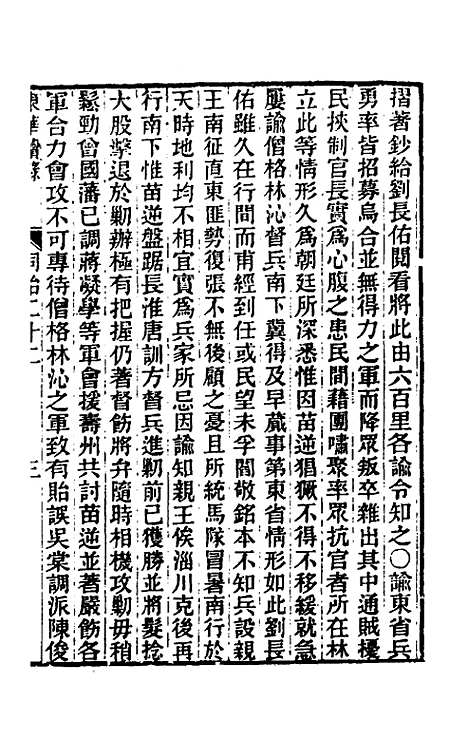 摺著鈔給劉長佑閱看將此由六百里各諭令知之〇諭東省兵
勇率皆招募烏合並無得力之軍而降眾叛卒雜出其中通賊擾
民挾制官長實為心腹之患民間藉團嘯聚率眾抗官者所在林
立此等情形久為朝廷所深悉惟因苗逆猖獗不得不移緩就急
屢諭僧格林沁督兵南下冀得及早蕆事第東省情形如此劉長
佑雖久在行間而甫經到任或民望未孚閻敬銘本不知兵設親
王南征直東匪勢復張不無後顧之憂且所統馬隊冒暑南行於
天時地利均不相宜實為兵家所忌因諭知親王俟淄川克後再
行南下惟苗逆盤踞長淮唐訓方督兵進勦前已獲勝並將髮捻
大股擊退於勦辦極有把握仍著督飭將弁隨時相機攻勦毋稍
鬆勁曾國藩已調蔣凝學等軍會援壽州共討苗逆並著嚴飭各
軍合力會攻不可專待僧格林沁之軍致有貽誤吳棠調派陳俊
東華續錄 同治二十二 三